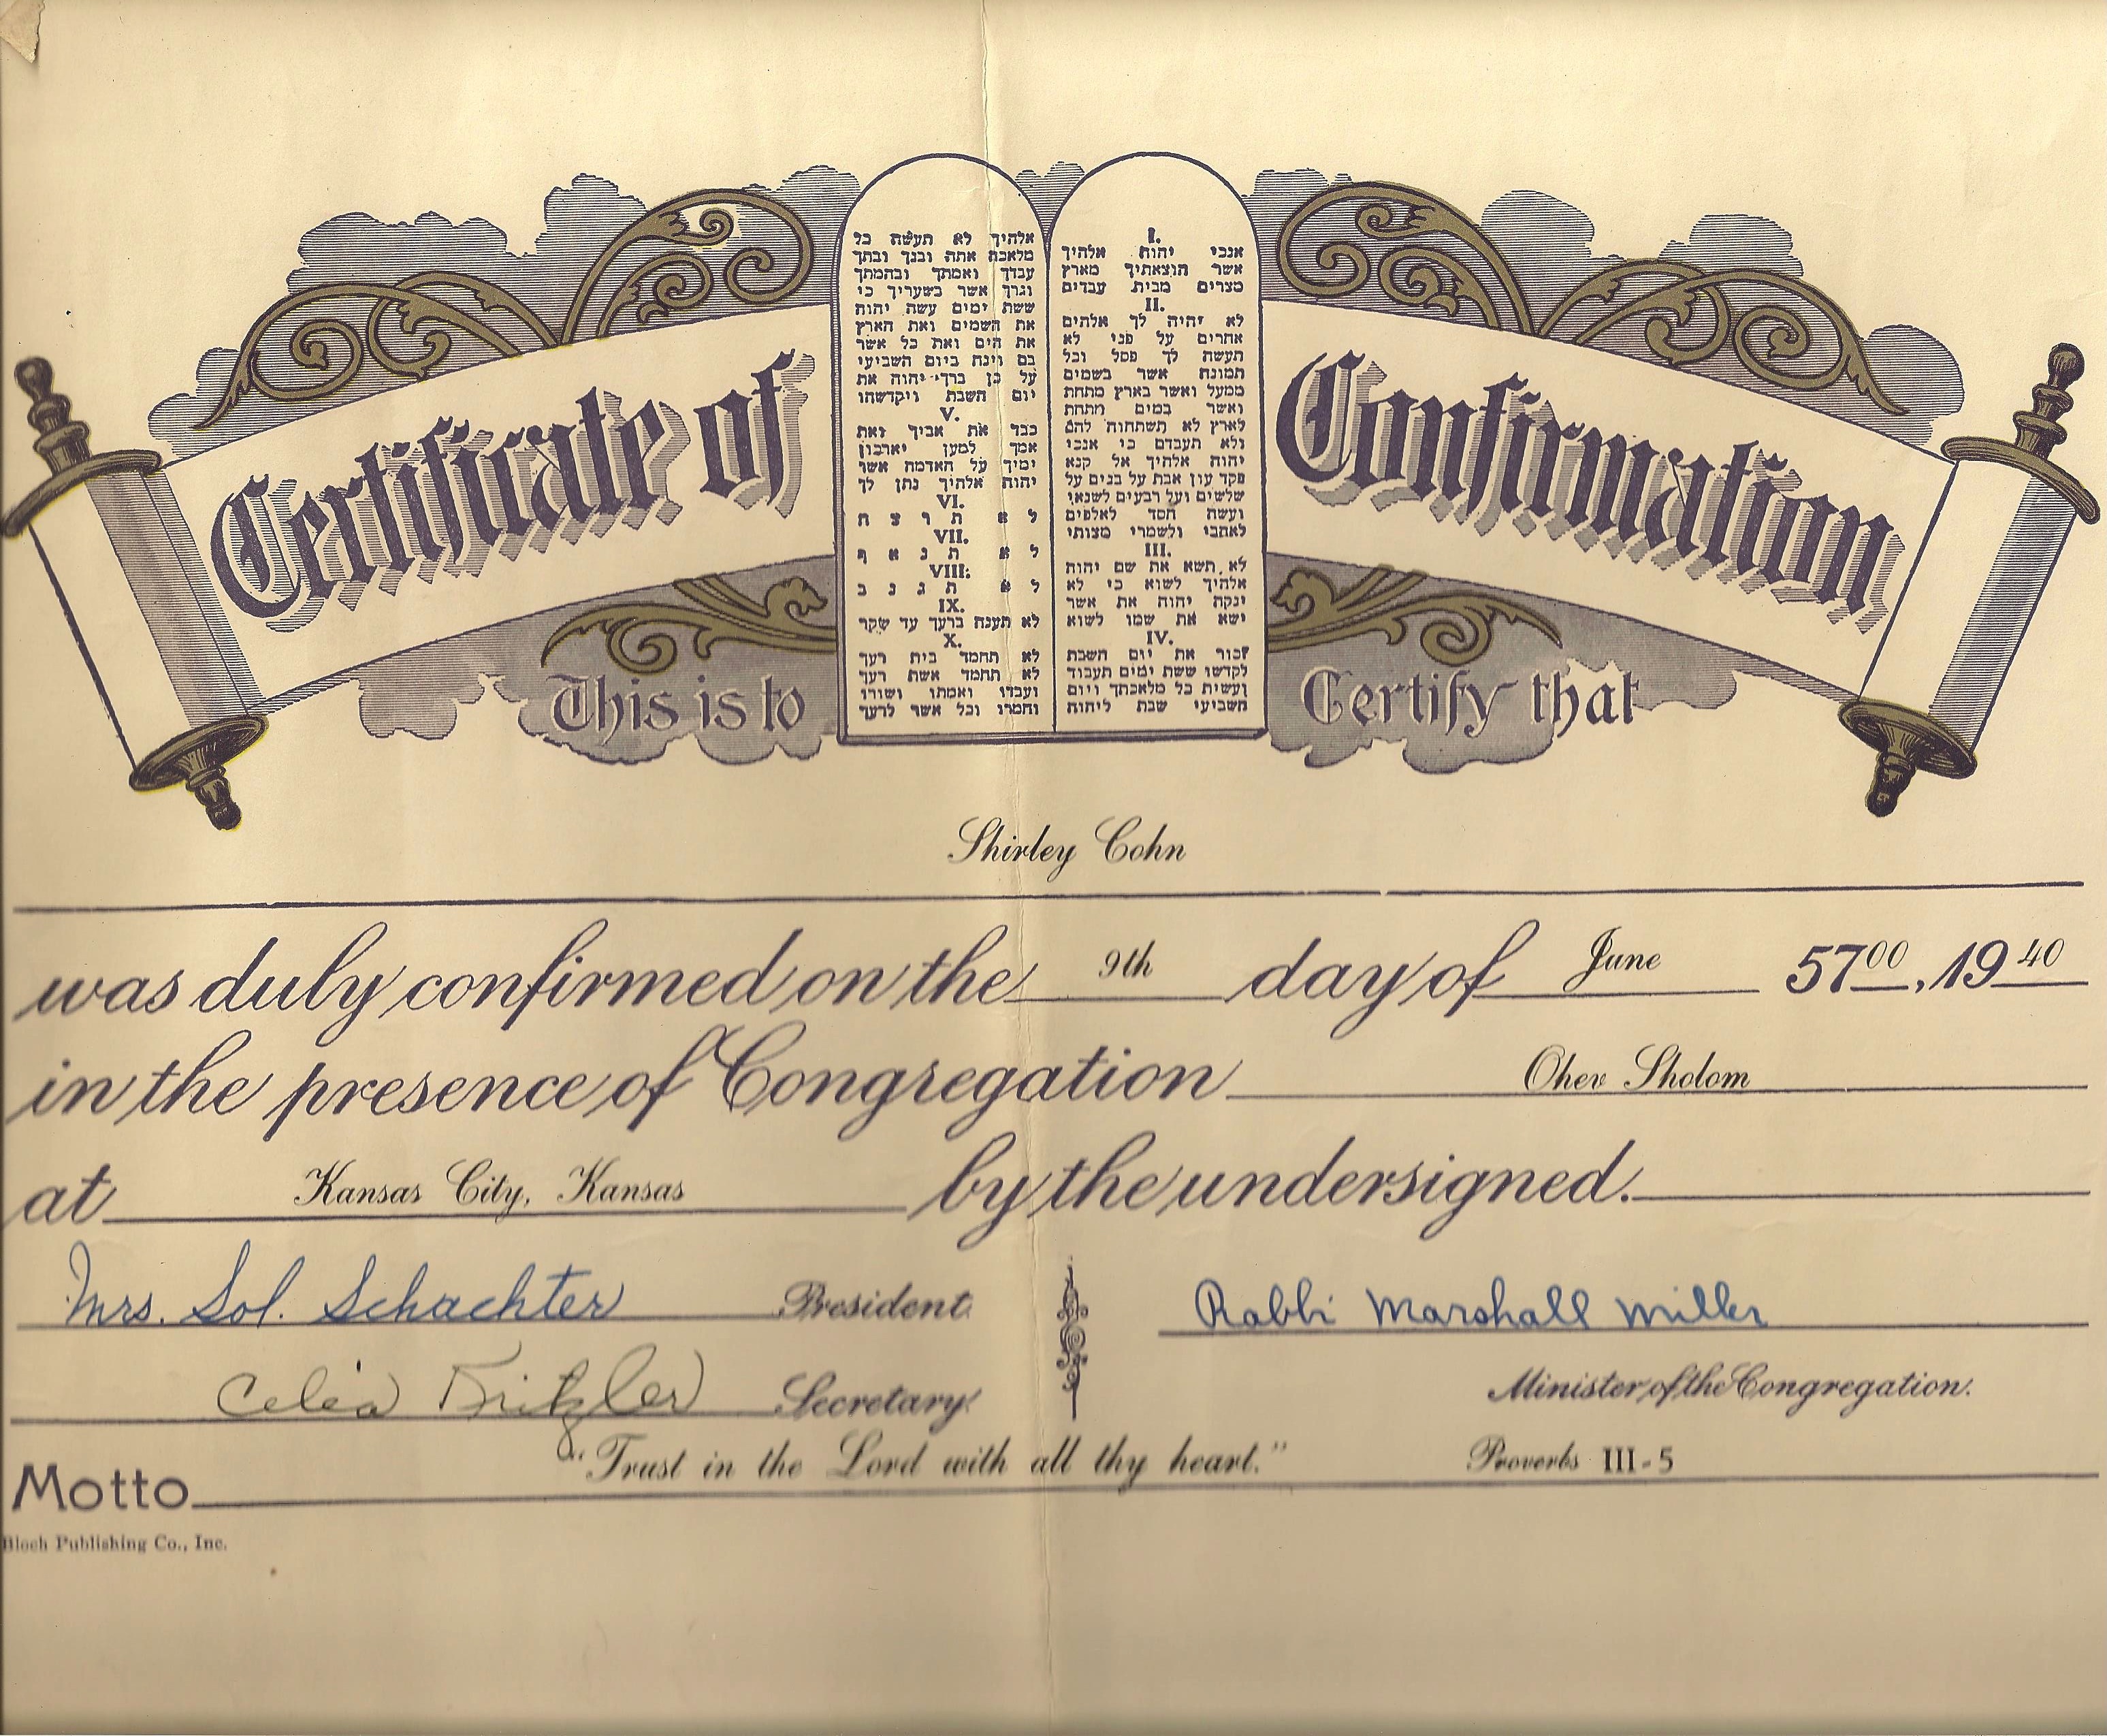 Certificate of Confirmation
I.
אנכי יהוה אלהיך
אשר הוצאתיך מארץ
מצרים מבית עבדים
II.
לא יהיה לך אלהים
אחרים על פני לא
תעשה לך פסל וכל
תמונה אשר בשמים
ממעל ואשר בארץ מתחת
ואשר במים מתחת
לארץ לא תשתחוה להם
ולא תעבדם כי אנכי
יהוה אלהיך אל קנא
פקד עון אבת על בנים על
שלשים ועל רבעים לשנאי
ועשה חסד לאלפים
לאהבי ולשמרי מצותי
III.
לא תשא את שם יהוה
אלהיך לשוא כי לא
ינקה יהוה את אשר
ישא את שמו לשוא
IV.
זכור את יום השבת
לקדשו ששת ימים תעבוד
ועשית כל מלאכתך ויום
השביעי שבת ליהוה
אלהיך לא תעשה כל
מלאכה אתה ובנך ובתך
עבדך ואמתך ובהמתך
וגרך אשר בשעריך כי
ששת ימים עשה יהוה
את השמים ואת הארץ
את הים ואת כל אשר
בם וינח ביום השביעי
על כן ברך יהוה את
יום השבת ויקדשהו
V.
כבד את אביך ואת
אמך למען יארכון
ימיך על האדמה אשר
יהוה אלהיך נתן לך
VI.
לא תרצח
VII.
לא תנאף
VIII.
לא תגנב
IX.
לא תענה ברעך עד שקר
X.
לא תחמד בית רעך
לא תחמד אשת רעך
ועבדו ואמתו ושורו
וחמרו וכל אשר לרעך
This is to Certify that
Shirley Cohn
was duly confirmed on the 9th day of June 5700, 1940
in the presence of Congregation Ohev Sholom
at Kansas City, Kansas by the undersigned.
Mrs. Sol. Schachter President. Rabbi Marshall Miller
Celia Kritzler Secretary. Minister of the Congregation.
Motto "Trust in the Lord with all thy heart." Proverbs III-5
Bloch Publishing Co., Inc.